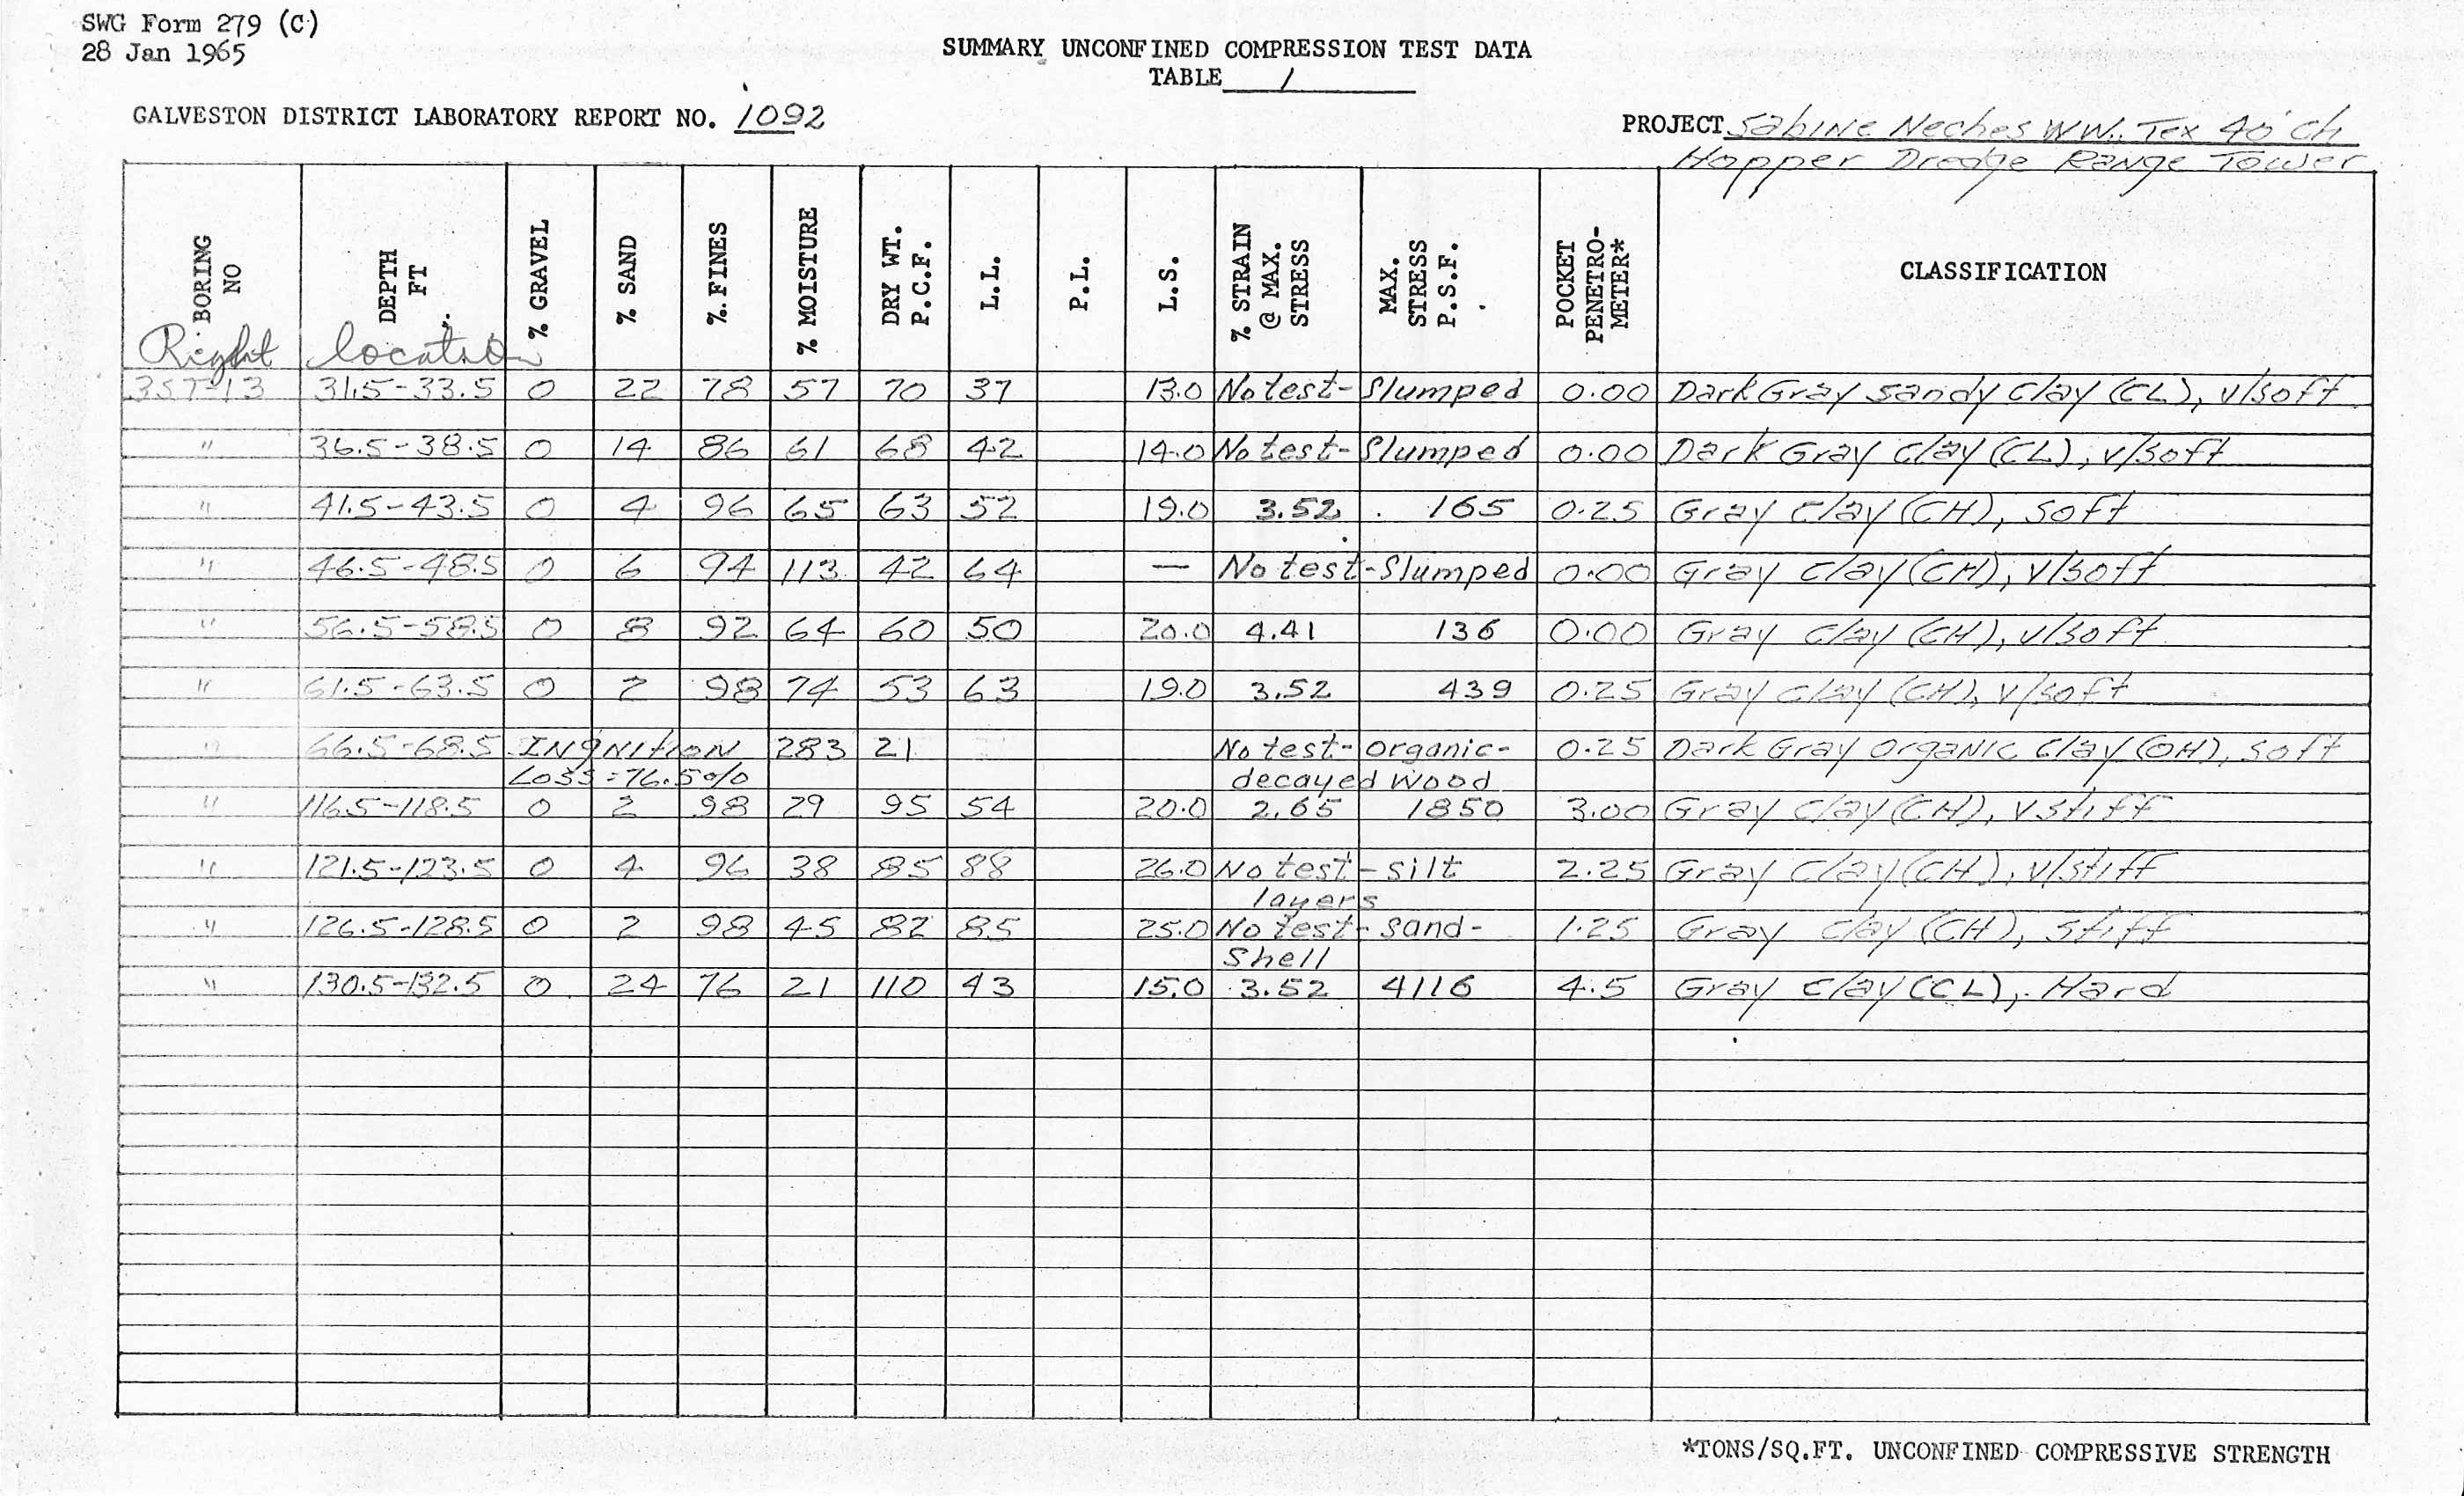 SWG Form 279 (C)
28 Jan 1965
SUMMARY UNCONFINED COMPRESSION TEST DATA
TABLE 1
GALVESTON DISTRICT LABORATORY REPORT NO. 1092
PROJECT Sabine Neches WW., Tex 40' Ch
Hopper Dredge Range Tower
BORING NO DEPTH FT % GRAVEL % SAND % FINES % MOISTURE DRY WT. P.C.F. L.L. P.L. L.S. % STRAIN @ MAX. STRESS MAX. STRESS P.S.F. POCKET PENETRO-METER* CLASSIFICATION
Right location
3ST-13 31.5-33.5 0 22 78 57 70 37 13.0 No test- Slumped 0.00 Dark Gray Sandy Clay (CL), v/soft
" 36.5-38.5 0 14 86 61 68 42 14.0 No test- Slumped 0.00 Dark Gray Clay (CL), v/soft
" 41.5-43.5 0 4 96 65 63 52 19.0 3.52 165 0.25 Gray Clay (CH), Soft
" 46.5-48.5 0 6 94 113 42 64 — No test-Slumped 0.00 Gray Clay (CH), v/soft
" 56.5-58.5 0 8 92 64 60 50 20.0 4.41 136 0.00 Gray Clay (CH), v/soft
" 61.5-63.5 0 2 98 74 53 63 19.0 3.52 439 0.25 Gray Clay (CH), v/soft
" 66.5-68.5 INgNition 283 21 No test- organic- 0.25 Dark Gray Organic Clay (OH), soft
Loss=76.5% decayed Wood
" 116.5-118.5 0 2 98 29 95 54 20.0 2.65 1850 3.00 Gray Clay (CH), v stiff
" 121.5-123.5 0 4 96 38 85 88 26.0 No test - silt 2.25 Gray Clay (CH), v/stiff
layers
" 126.5-128.5 0 2 98 45 82 85 25.0 No test- Sand- 1.25 Gray Clay (CH), stiff
Shell
" 130.5-132.5 0 24 76 21 110 43 15.0 3.52 4116 4.5 Gray Clay (CL), Hard
*TONS/SQ.FT. UNCONFINED COMPRESSIVE STRENGTH